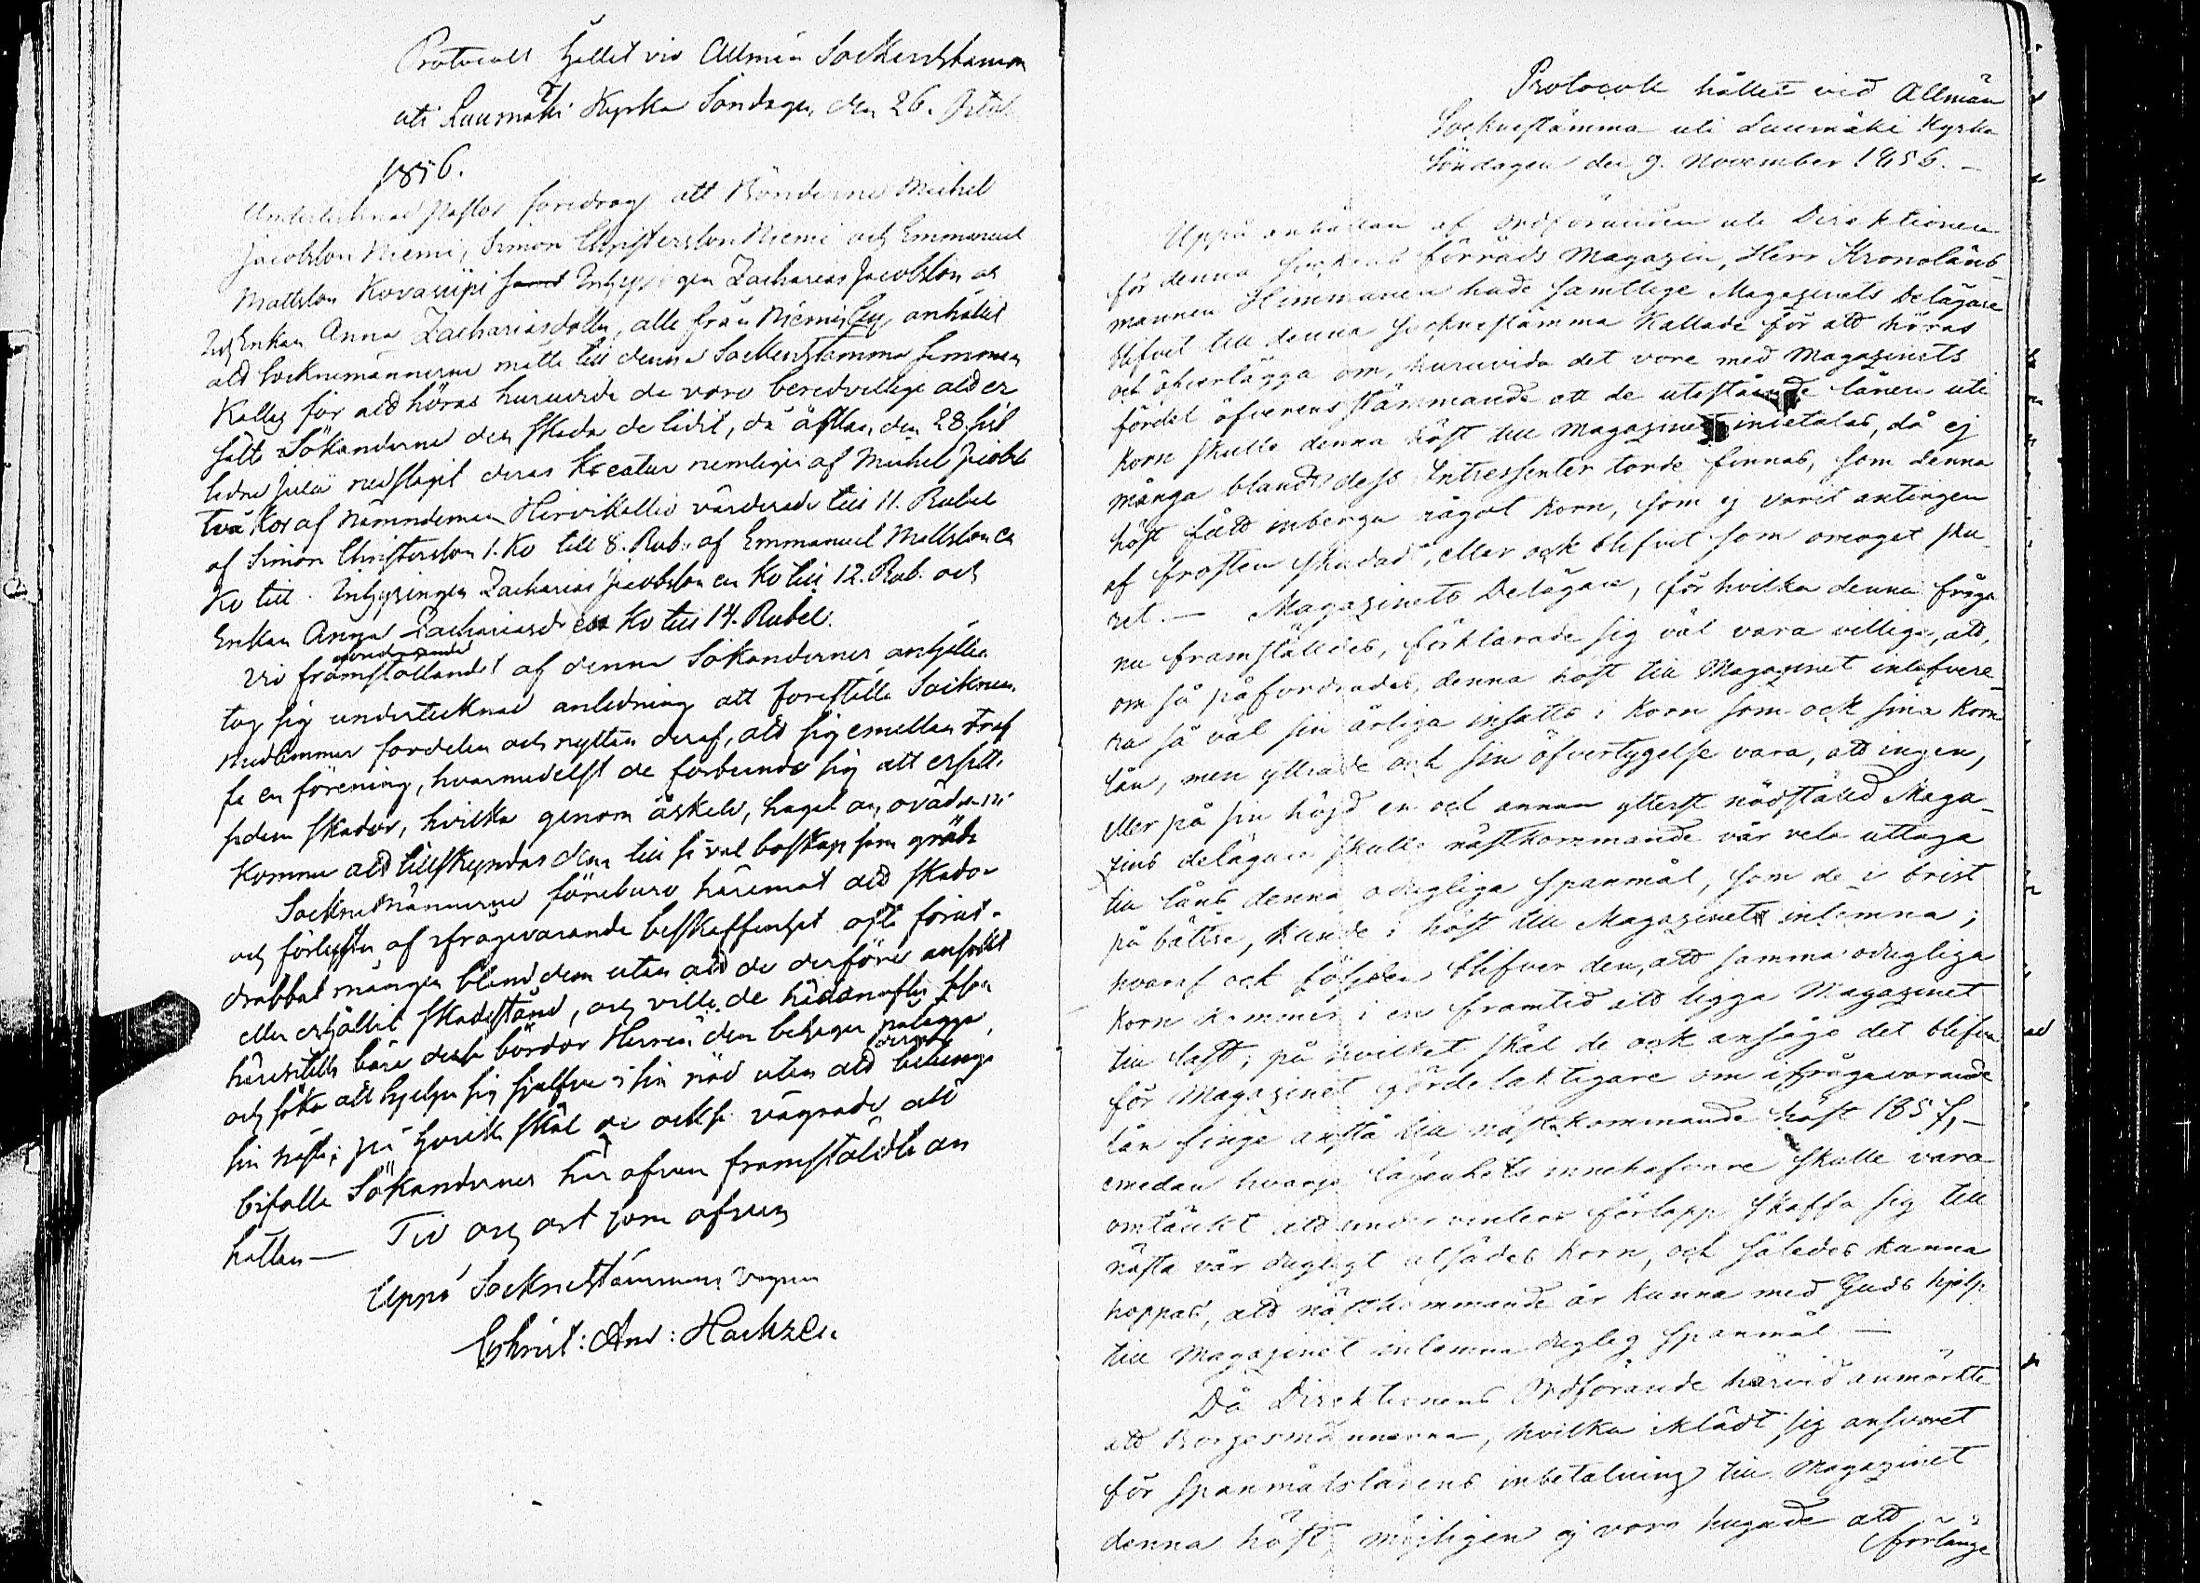 Protocoll hållet vid Allmän Sockenstämma
uti Luumäki Kyrka Söndagen den 26. Octob
1856.
Undertecknad Pastor föredrog att Bönderne Michel
Jacobsson Niemi, Simon Christersson Niemi och Emmanuel
Mattsson Kovasiipi samt Inhysingen Zacharias Jacobsson och
Enkan Anna Zachariasdotter, alle från Niemis by anhållit
att Socknemännerne måtte till denna Sockenstämma sammen
Kallas för att höras huruvida de voro beredvillige att er
sätta Sökanderne den skada de lidit, då åskan den 28 sist
lidne Julii nedslagit deras Kreatur nemligen af Michel Jacobs
två Kor af Nämndeman Hirvikallio värderade till 11. Rubel
af Simon Christersson 1. Ko till 8. Rub. af Emmanuel Mattsson en
Ko till Inhysingen Zacharias Jacobsson en Ko till 12. Rub. och
Enkan Anna Zachariasd en Ko till 14. Rubel.
Vid framställandet af denna Sökandernes anhållan
tog sig undertecknad anledning att föreställa Sockne
medlemmar fördelen och nyttan deraf, att sig emellan träf
fa en förening, hvarmedelst de förbundo sig att ersätta
sådan skador, hvilka genom åskeld, hagel och oväder
Komma att tillskyndas dem till så väl boskap som gröda
Socknemännerne föreburo häremot att skador
och förluster af ifrågavarande beskaffenhet ofta förut
drabbat mången bland dem utan att de derföre ansökt
eller erhållit skadestånd, och ville de hädanefter
bära dessa bördor Herren dem behagar pålägga
och söka att hjelpa sig sjelfve i sin nöd utan att betunga
sin nästa; på hvilka skäl de också vägrade att
bifalla Sökandernes här ofvan framställda an
hållan— Tid och ort som ofvan
Uppå Sockenstämmans vägnar
Christ: And: Hackzell
Protocoll hållet vid Allmän
Sockenstämma uti Luumäki Kyrka
Söndagen den 9. November 1856.—
Uppå anhållan af Ordföranden uti Direktionen
för denna Sockens förråds Magazin, Herr Kronoläns-
mannen Himmanen hade samtlige Magazinets Delägare
blifvit till denna Socknestämma Kallade för att höras
och öfverlägga om, huruvida det vore med Magazinets
fördel öfverensstämmande att de utestående lånen uti
Korn skulle denna höst till Magazinet inbetalas, då ej
många bland dess Intressenter torde finnas, som denna
höst fått inberga något Korn, som ej varit antingen
af frosten skadad, eller ock blifvit som omoget sku-
ret.— Magazinets Delägare, för hvilka denna fråga
nu framställdes, förklarade sig väl vara villige, att,
om så påfordrades, denna höst till Magazinet inlefvere-
ra så väl sin årliga insatts i Korn som ock sina Korn
lån, men yttrade ock sin öfvertygelse vara, att ingen,
eller på sin höjd en och annan ytterst nödställd Maga-
zins delägare skulle nästkommande vår vela uttaga
till låns denna odugliga spanmål, som de i brist
på bättre, kunde i höst till Magazinet inlemna;
hvaraf ock följden blifver den, att samma odugliga
Korn kommer i en framtid att ligga Magazinet
till last; på hvilket skäl de ock ansågo det blifva
för Magazinet fördelaktigare om ifrågavarande
lån finge anstå till nästkommande höst 1857,—
emedan hvarje lägenhets innehafvare skulle vara
omtänkt att under vinterns förlopp skaffa sig till
nästa vår dugligt utsädes Korn, och således kunna
hoppas, att nästkommande år kunna med Guds hjelp
till Magazinet inlemna duglig spanmål.—
Då Direktionens Ordförande härvid anmärkte
att Borgesmännerna, hvilka iklädt sig ansvaret
för spanmålslånens inbetalning till Magazinet
denna höst, möjligen ej voro hugade att
förlänga